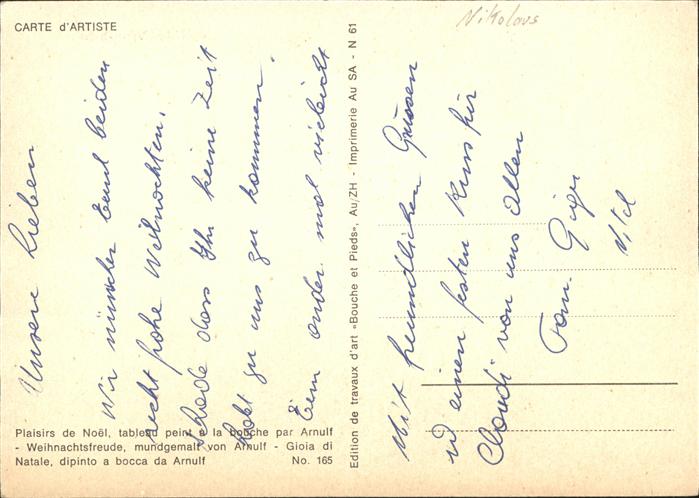 CARTE d'ARTISTE
Nikolaus
Unsere Lieben
Wir wünschen Euch beiden
recht frohe Weihnachten.
Schade dass Ihr keine Zeit
habt zu uns zu kommen.
Eim ander mal vieleicht
Plaisirs de Noël, tableau peint à la bouche par Arnulf
- Weihnachtsfreude, mundgemalt von Arnulf - Gioia di
Natale, dipinto a bocca da Arnulf No. 165
Edition de travaux d'art «Bouche et Pieds», Au/ZH - Imprimerie Au SA - N 61
Mit freundlichen Grüssen
und einen festen Kuss für
Claudi von uns allen
Fam. Giger